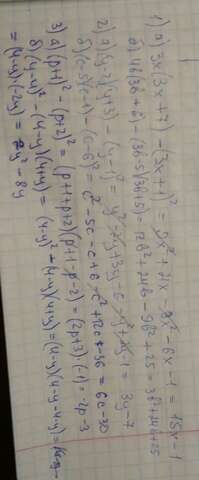 1) а) 3x(3x+7) - (3x+1)² = 9x² + 21x - 9x² - 6x - 1 = 15x - 1
б) 4b(3b+6) - (3b-5)(3b+5) = 12b² + 24b - 9b² + 25 = 3b² + 24b + 25
2) а) (y-2)(y+3) - (y-1)² = y² - 2y + 3y - 6 - y² + 2y - 1 = 3y - 7
б) (c-5)(c-1) - (c-6)² = c² - 5c - c + 5 - c² + 12c - 36 = 6c - 30
3) а) (p+1)² - (p+2)² = (p+1+p+2)(p+1-p-2) = (2p+3)·(-1) = -2p-3
б) (4-y)² - (4-y)(4+y) = (4-y)² - (4-y)(4+y) = (4-y)(4-y-4-y) =
= (4-y)·(-2y) = 2y² - 8y